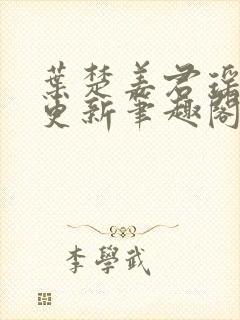 葉楚姜君瑤
更新筆趣閣
李學武